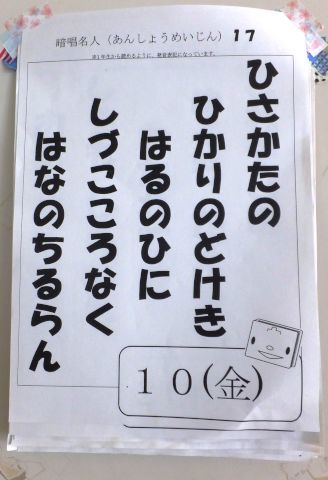 暗唱名人（あんしょうめいじん） 17
※1年生から読めるように、発音表記になっています。
ひさかたの
ひかりのどけき
はるのひに
しづこころなく
はなのちるらん
10(金)